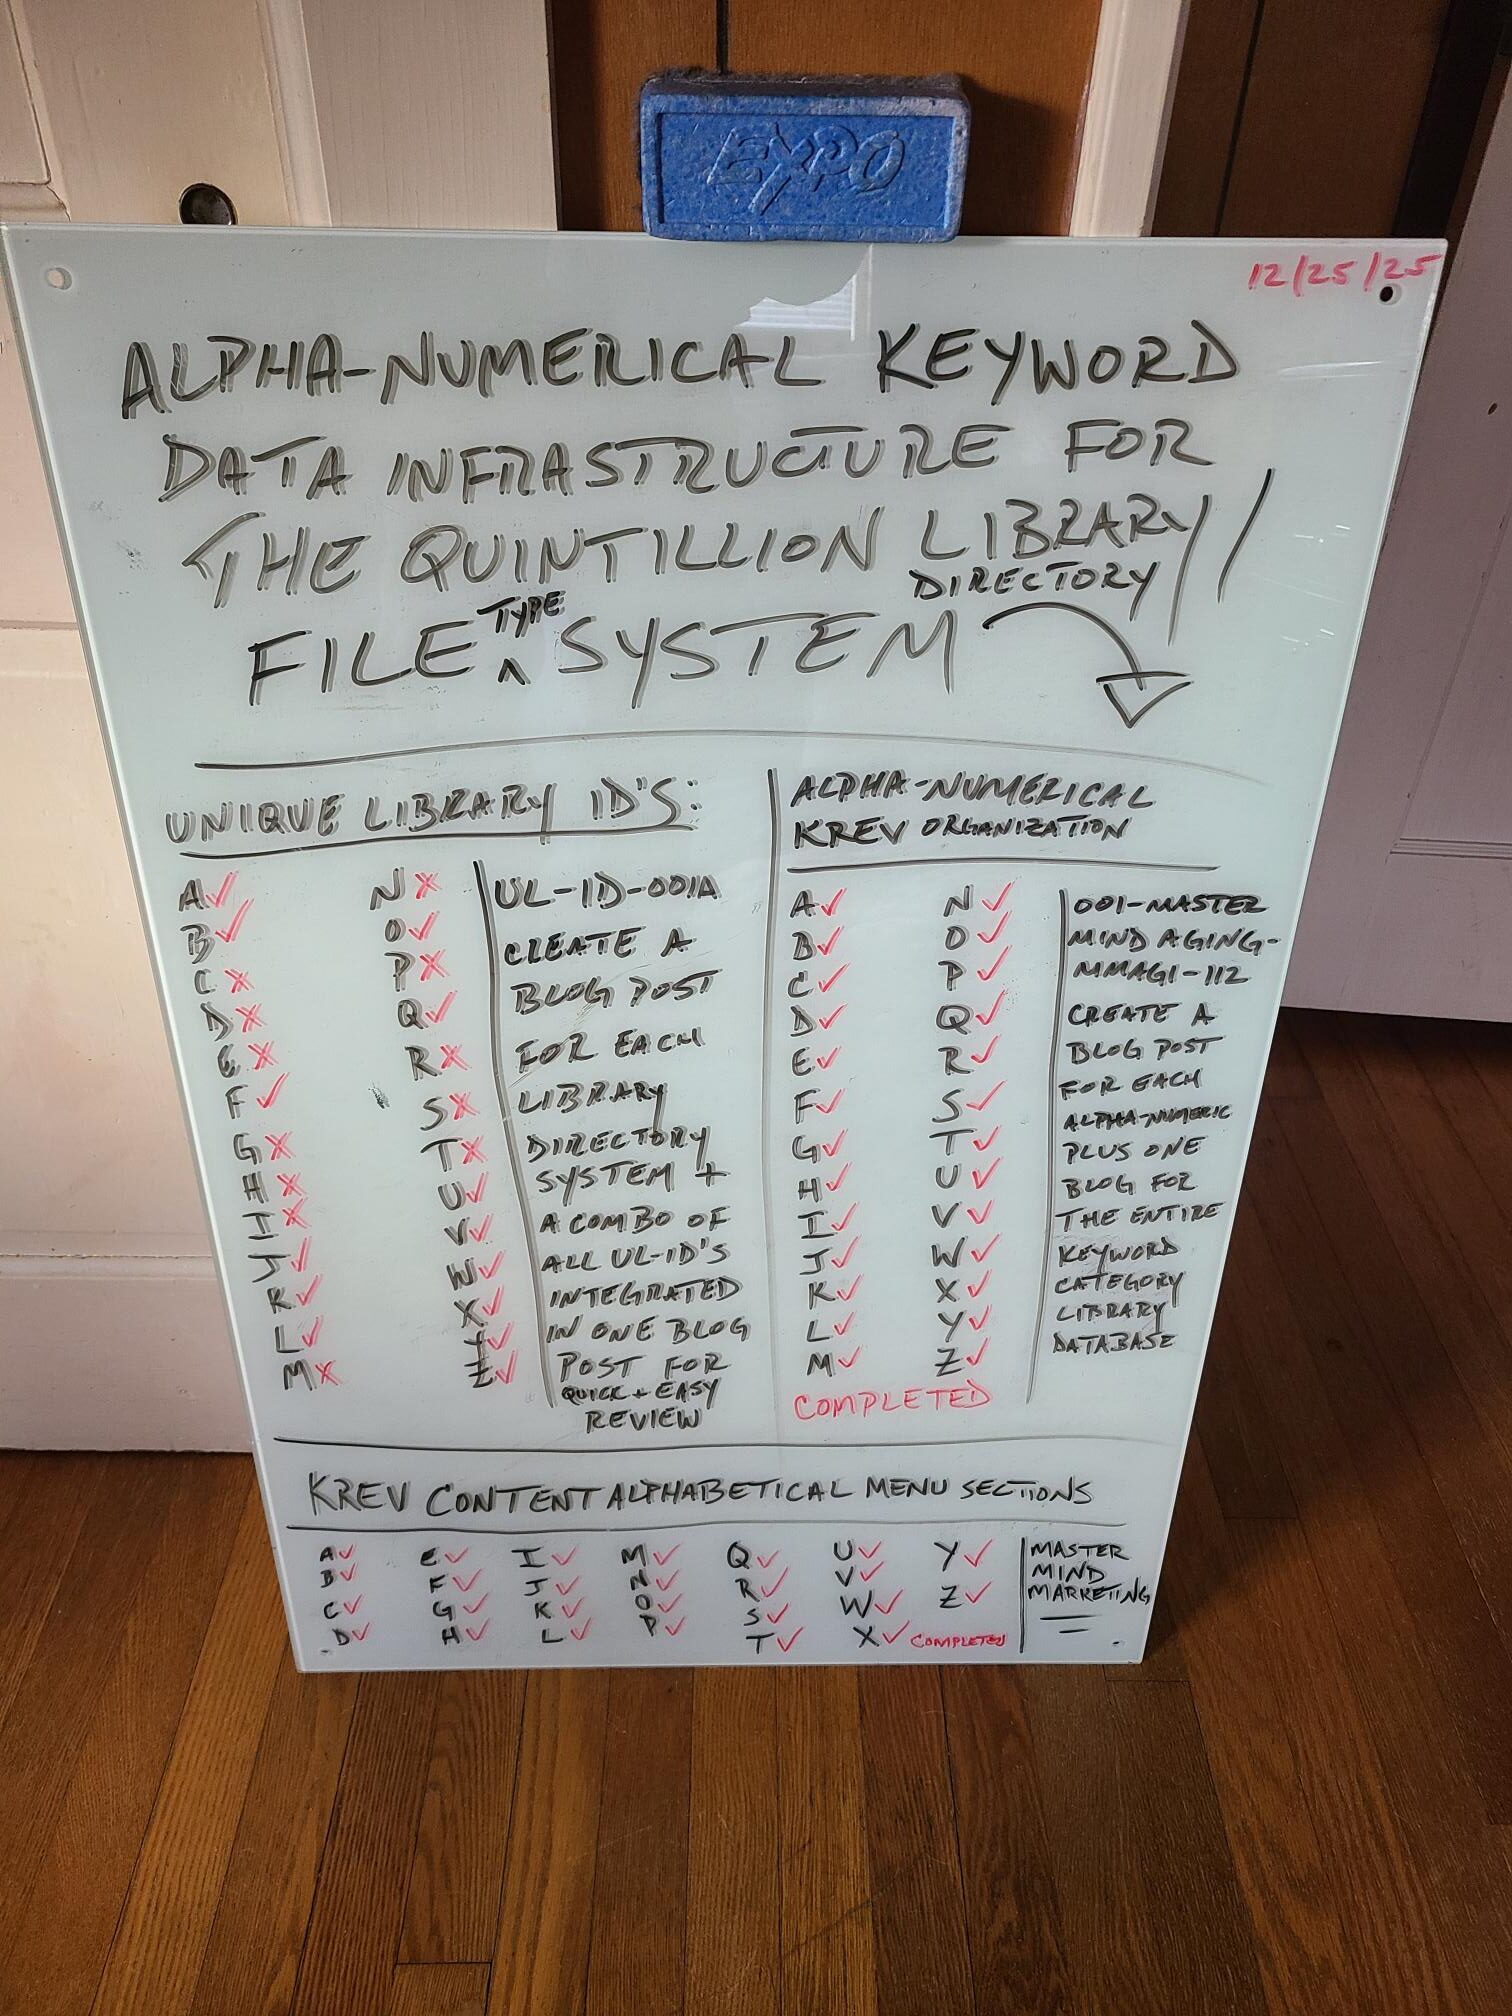 EXPO
12/25/25
ALPHA-NUMERICAL KEYWORD
DATA INFRASTRUCTURE FOR
THE QUINTILLION LIBRARY/
DIRECTORY/
FILE ^ TYPE SYSTEM
UNIQUE LIBRARY ID'S:
A✓ N✗
B✓ O✓
C✗ P✗
D✗ Q✓
E✗ R✗
F✓ S✗
G✗ T✗
H✗ U✓
I✗ V✓
J✓ W✓
K✓ X✓
L✓ Y✓
M✗ Z✓
UL-ID-001A
CREATE A
BLOG POST
FOR EACH
LIBRARY
DIRECTORY
SYSTEM +
A COMBO OF
ALL UL-ID'S
INTEGRATED
IN ONE BLOG
POST FOR
QUICK + EASY
REVIEW
ALPHA-NUMERICAL
KREV ORGANIZATION
A✓ N✓
B✓ O✓
C✓ P✓
D✓ Q✓
E✓ R✓
F✓ S✓
G✓ T✓
H✓ U✓
I✓ V✓
J✓ W✓
K✓ X✓
L✓ Y✓
M✓ Z✓
COMPLETED
001-MASTER
MIND AGING-
MMAGI-112
CREATE A
BLOG POST
FOR EACH
ALPHA-NUMERIC
PLUS ONE
BLOG FOR
THE ENTIRE
KEYWORD
CATEGORY
LIBRARY
DATABASE
KREV CONTENT ALPHABETICAL MENU SECTIONS
A✓ E✓ I✓ M✓ Q✓ U✓ Y✓
B✓ F✓ J✓ N✓ R✓ V✓ Z✓
C✓ G✓ K✓ O✓ S✓ W✓
D✓ H✓ L✓ P✓ T✓ X✓ COMPLETED
MASTER
MIND
MARKETING